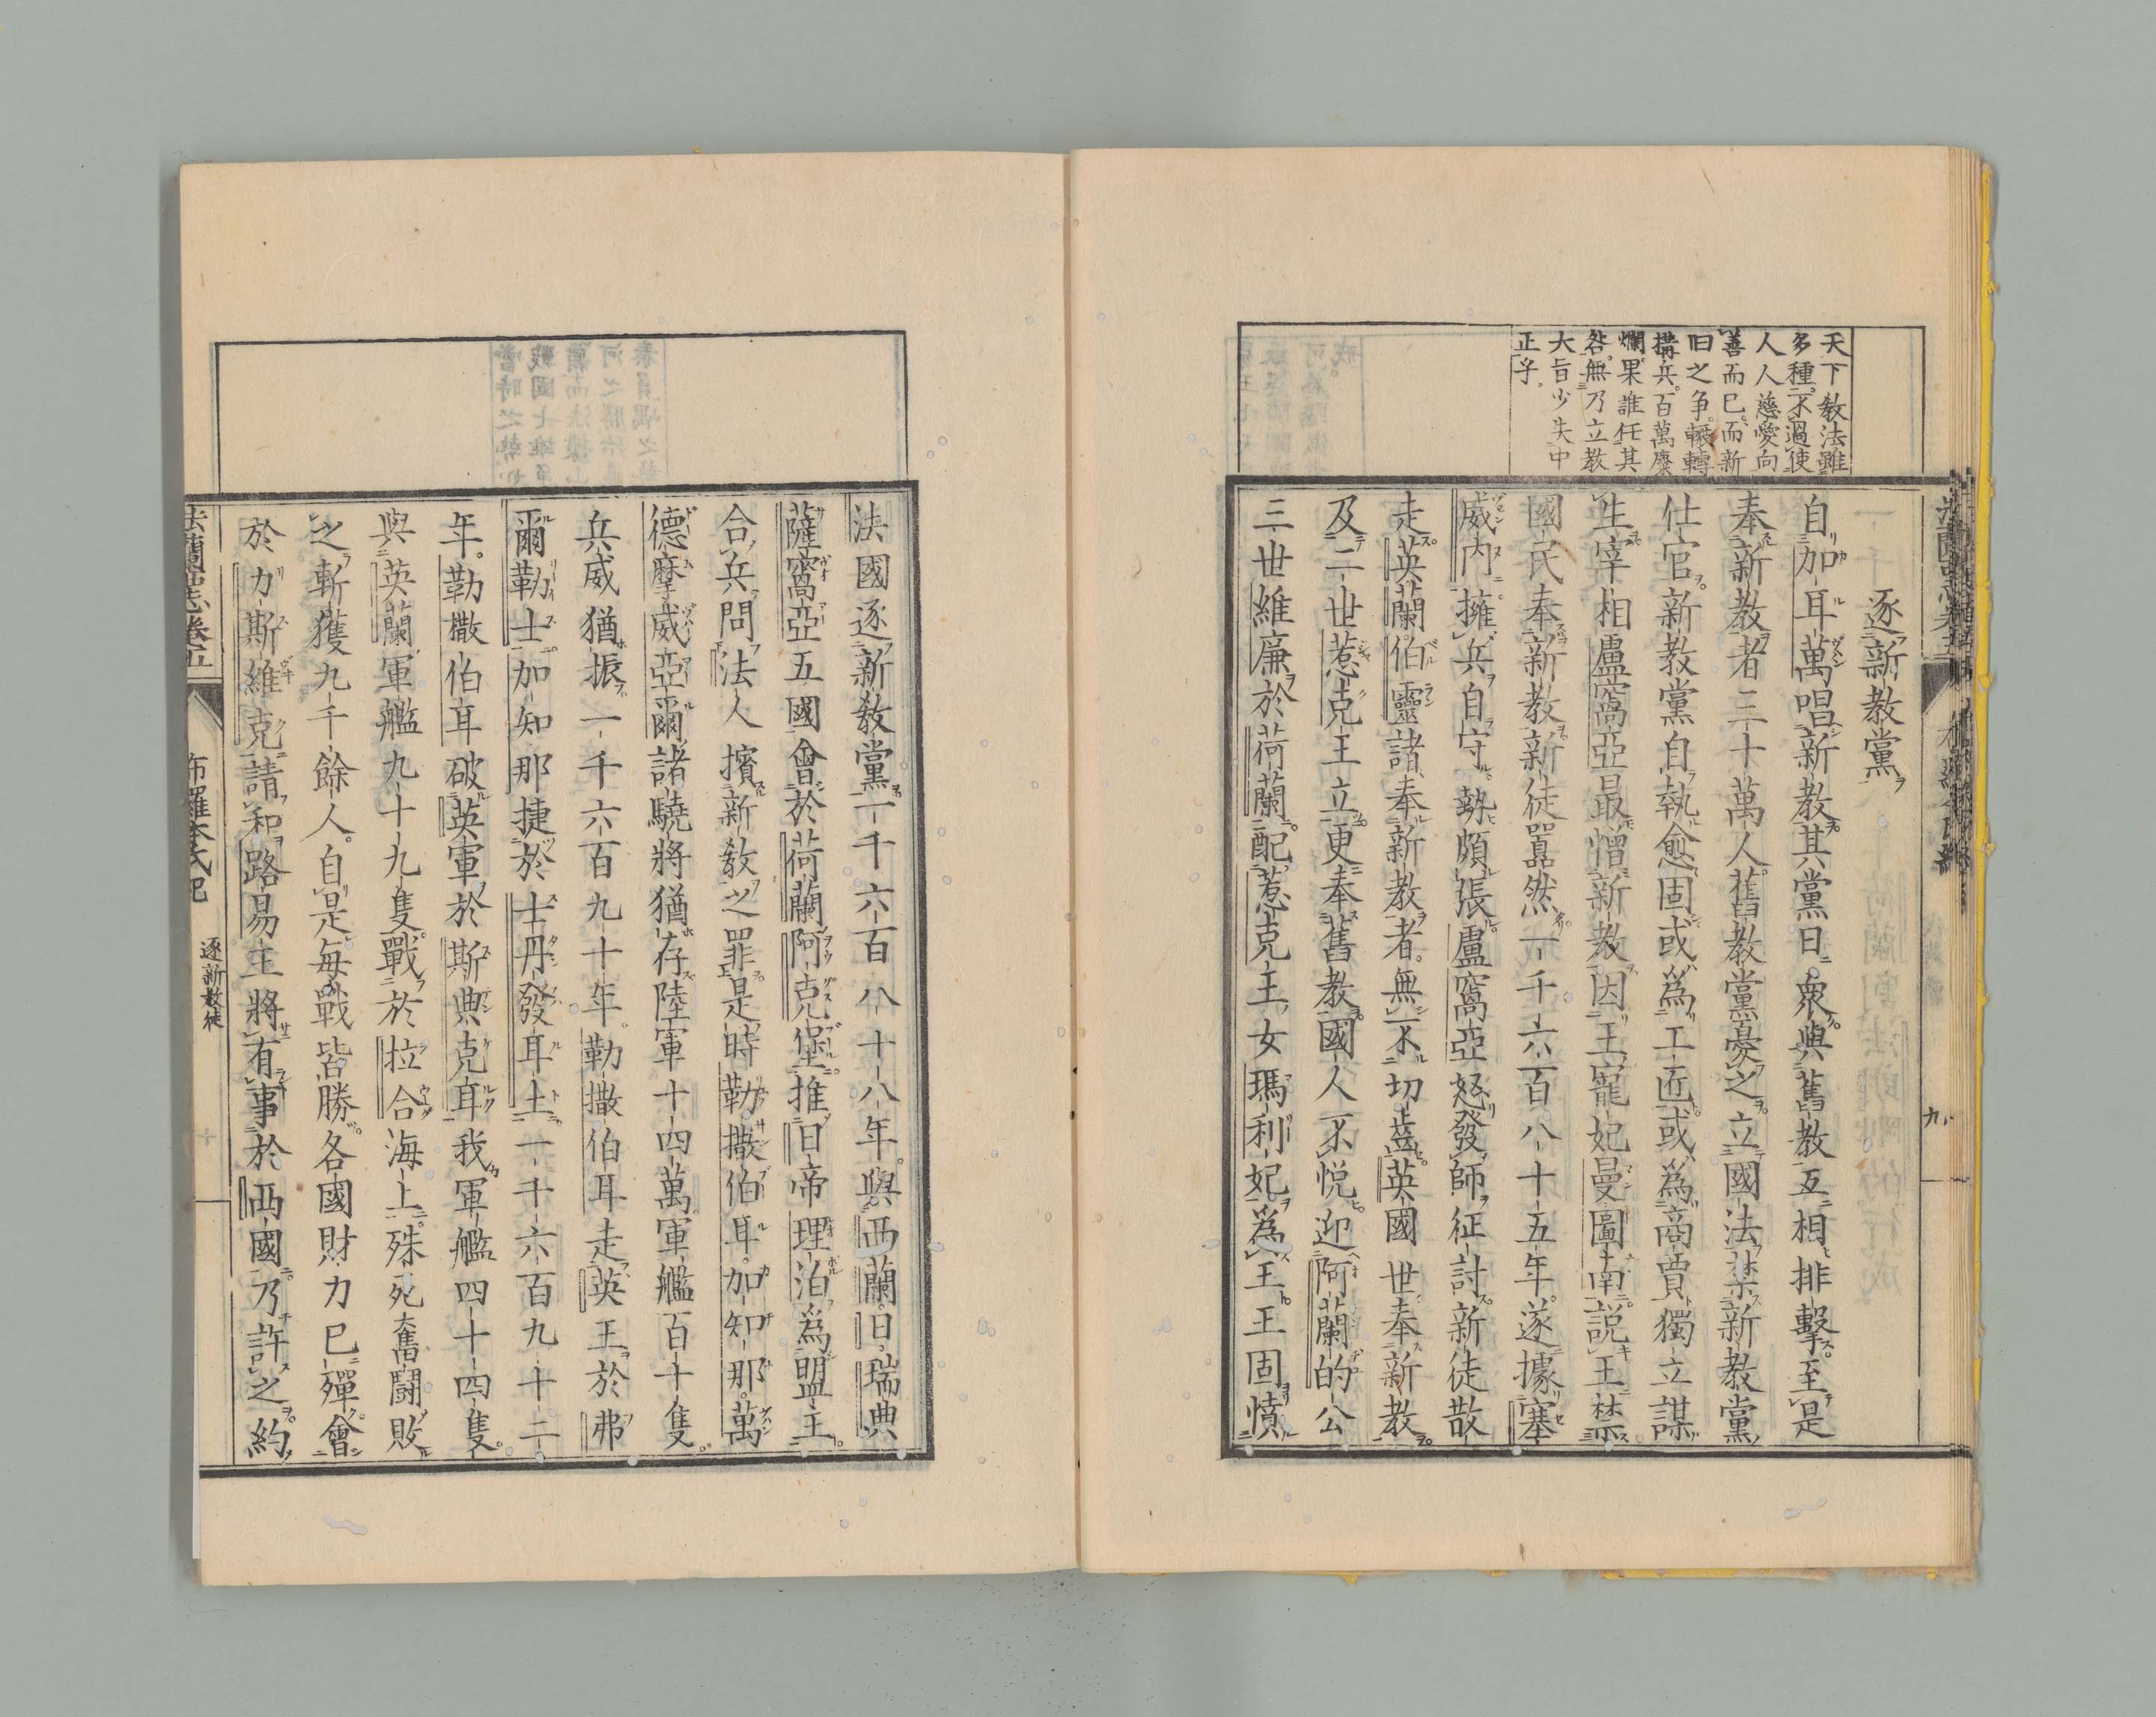 天下敎法雖
多種。不過使
人人慈愛向
善而已。而新
旧之争。輾轉
搆兵。百萬麋
爛。果誰任其
咎。無乃立敎
大旨少失中
正乎。
逐新教黨
自加耳萬唱新教其黨日衆與舊教互相排擊。至是
奉新教者三十萬人。舊教黨憂之立國法禁新教黨
仕官。新教黨自執愈固或爲工匠或爲商賈獨立謀
生。宰相盧窩亞最憎新教因王寵妃曼圖南説王禁
國民奉新教。新徒囂然。一千六百八十五年。遂據塞
威內擁兵自守。勢頗張盧窩亞怒發師征討新徒散
走英蘭伯靈諸奉新教者。無不切齒英國世奉新教。
及二世惹克王立。更奉舊教。國人不悦。迎阿蘭的公
三世維廉於荷蘭。配惹克王女瑪利妃爲王。王固憤
九
法國逐新敎黨。一千六百八十八年。與西蘭日瑞典
薩窩亞五國會於荷蘭阿克堡。推日帝理泊爲盟主。
合兵問法人擯新敎之罪。是時勒撒伯耳加知那。萬
德摩威亞爾諸驍將猶存陸軍十四萬軍艦百十隻。
兵威猶振。一千六百九十年。勒撒伯耳走英王於弗
爾勒士。加知那捷於士丹發耳土。一千六百九十二
年。勒撒伯耳破英軍於斯典克耳我軍艦四十四隻。
與英蘭軍艦九十九隻。戰於拉合海上。殊死奮鬪敗
之斬獲九千餘人。自是每戰皆勝。各國財力已殫。會
於力斯維克請和路易王將有事於西國。乃許之。約
法蘭西志卷五
布羅本氏紀
逐新敎徒
十